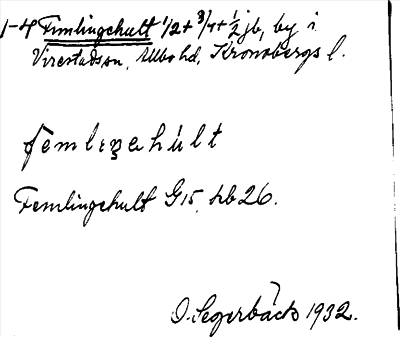 1-4 Femlingehult 1/2 + 3/4 + 1/2 jb, by i
Virestads sn, Allbo hd, Kronobergs l.
Femlingehult G15, hb 26.
O. Segerbäck 1932.